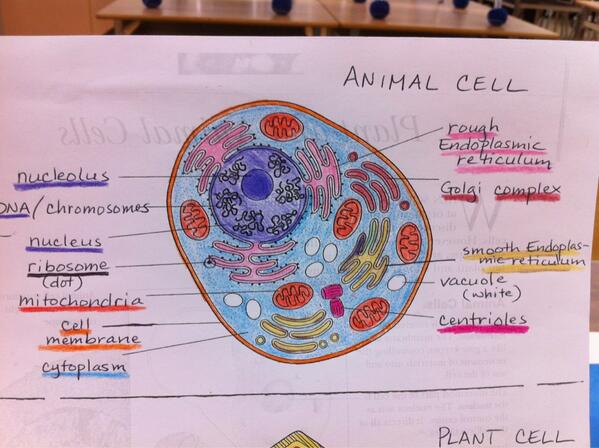 ANIMAL CELL
nucleolus
DNA/chromosomes
nucleus
ribosome
(dot)
mitochondria
cell
membrane
cytoplasm
rough
Endoplasmic
reticulum
Golgi complex
smooth Endoplas-
mic reticulum
vacuole
(white)
centrioles
PLANT CELL